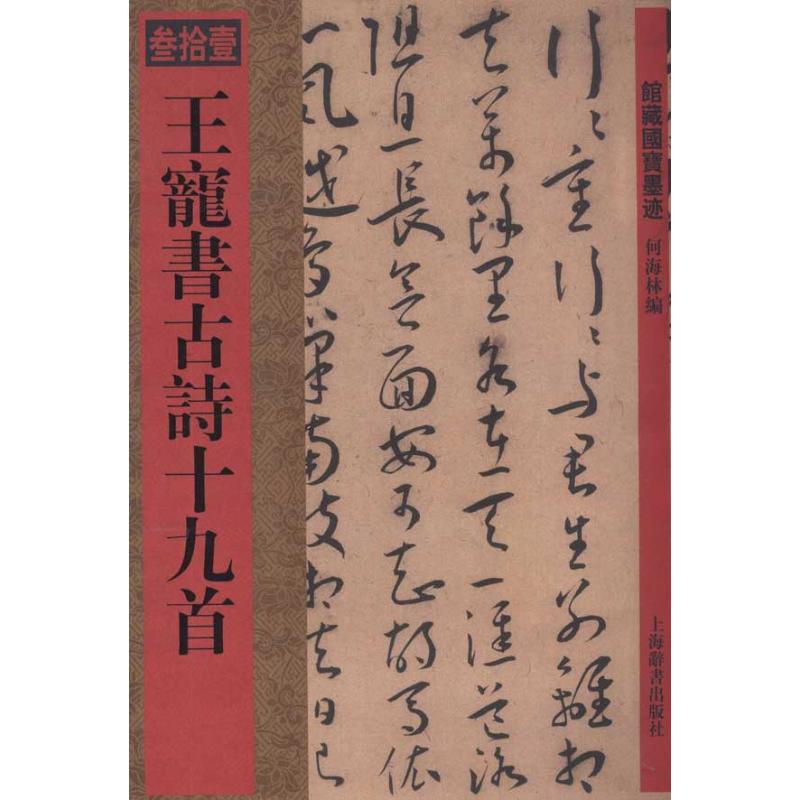 館藏國寶墨迹
何海林編
上海辭書出版社
行〻重行〻與君生別離相
去萬餘里各在天一涯道路
阻且長會面安可知胡馬依
風越鳥巢南枝相去日已
叁拾壹
王寵書古詩十九首